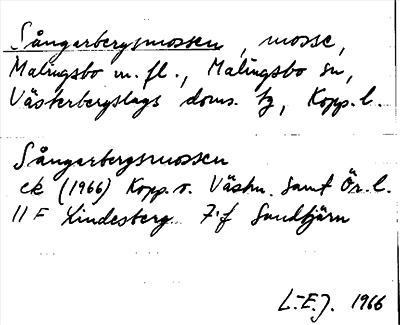 Sångarbergsmossen, mosse,
Malingsbo m. fl., Malingsbo sn,
Västerbergslags doms. tg, Kopp. l.
Sångarbergsmossen
ek (1966) Kopp. o. Västm. samt Ör. l.
11 F Lindesberg 7f Sandtjärn
L-E.J. 1966